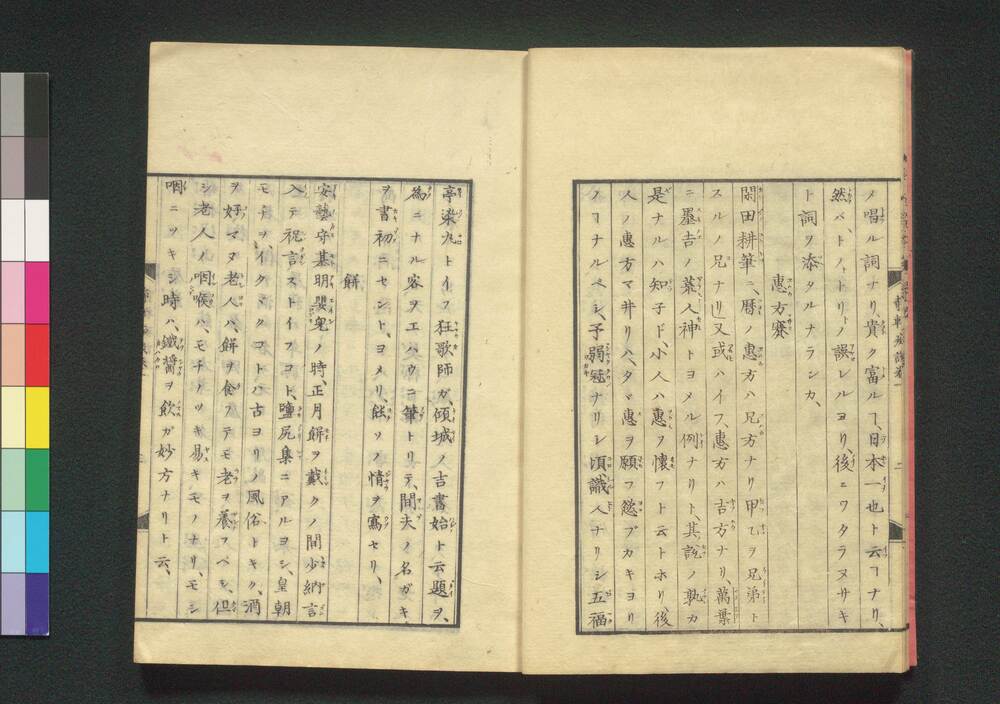 ノ唱ル詞ナリ、貴ク富ルヿ、日本一也ト云ヿナリ、
然バ、トノ、トリト、ノ誤レルヨリ、後ニワタラヌサキ
ト詞ヲ添タルナランカ、
惠方賽
閑田耕筆ニ、暦ノ惠方ハ兄方ナリ甲乙ヲ兄弟ト
スルノ兄ナリ又或ハイフ、惠方ハ吉方ナリ、萬葉
ニ墨吉ノ荒人神トヨメル例ナリト、其説ノ孰カ
是ナルハ知子ド、小人ハ惠ヲ懷フト云トホリ、後
人ノ惠方マ井リハ、タマ惠ヲ願フ慾ブカキヨリ
ノヿナルベシ、予弱冠ナリシ頃、識人ナリシ五福
亭染丸トイフ狂歌師ガ、傾城ノ吉書始ト云題ヲ、
為ニナル客ヲエハウニ筆トリテ、間夫ノ名ガキ
ヲ書初ニセント、ヨメリ、能ソノ情ヲ寫セリ、
餅
安藝守基明嬰兒ノ時、正月餅ヲ戴クノ間少納言
入テ祝言ストイフコト、鹽尻集ニアルヨシ、皇朝
モチヲ、イタヾクコトハ古ヨリノ風俗トキク、消
ヲ好マヌ老人ハ、餅ヲ食フテモ老ヲ養フベシ、但
シ老人ノ咽喉ハ、モチノツキ易キモノナリ、モシ
咽ニツキシ時ハ、鐵醬ヲ飲ガ妙方ナリト云、